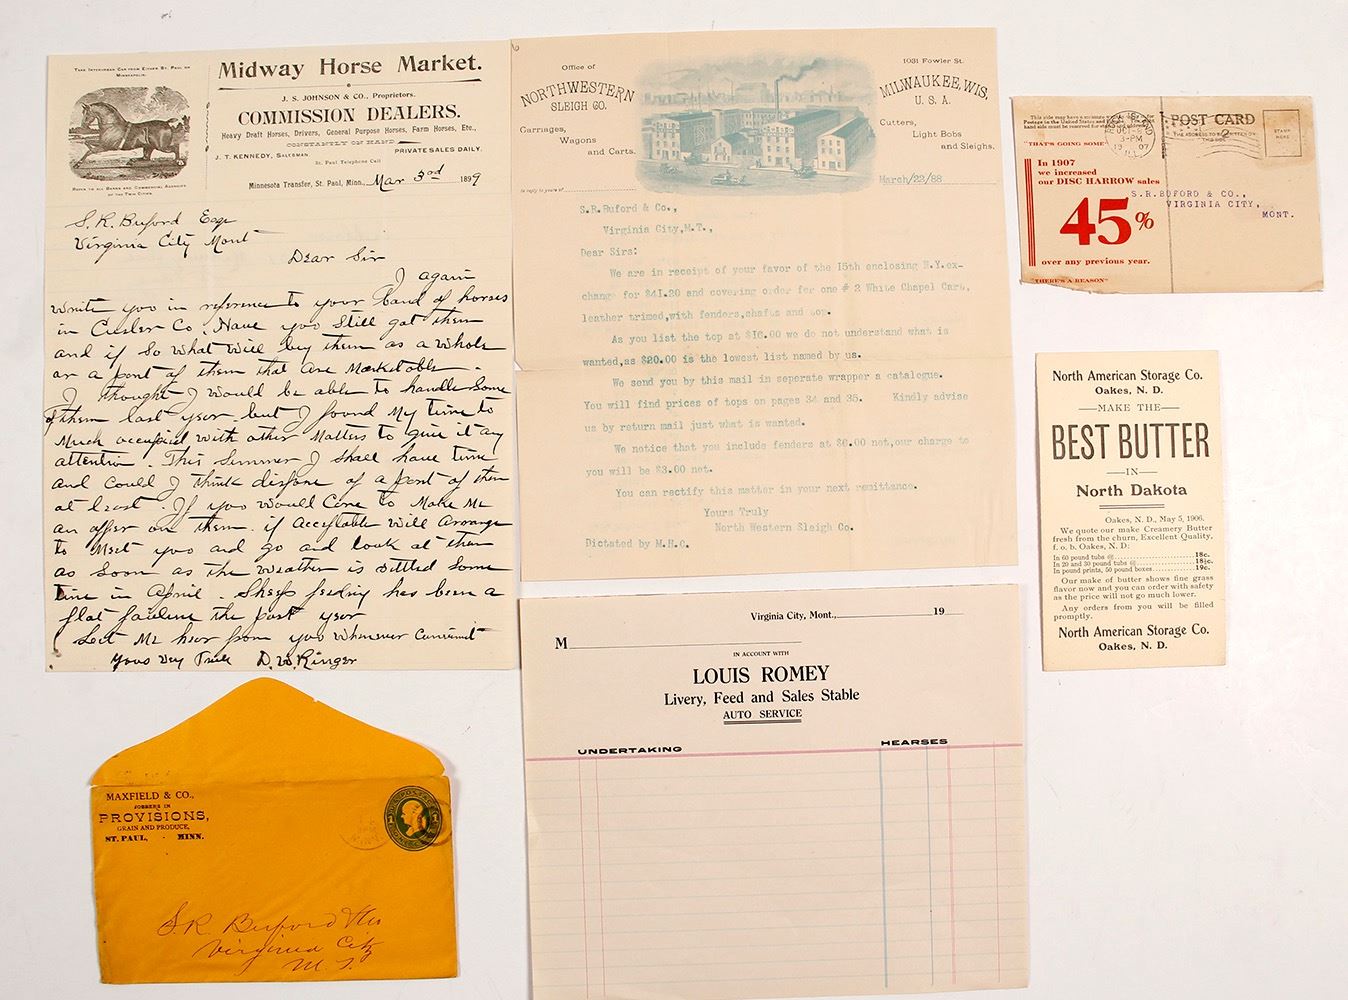 TAKE INTERURBAN CAR FROM EITHER ST. PAUL OR
MINNEAPOLIS.
REFER TO ALL BANKS AND COMMERCIAL AGENCIES
OF THE TWIN CITIES
Midway Horse Market.
J. S. JOHNSON & CO., Proprietors.
COMMISSION DEALERS.
Heavy Draft Horses, Drivers, General Purpose Horses, Farm Horses, Etc.,
CONSTANTLY ON HAND
J. T. KENNEDY, SALESMAN. PRIVATE SALES DAILY.
St. Paul Telephone Call
Minnesota Transfer, St. Paul, Minn., Mar 3rd 1899
S. R. Buford Esqr
Virginia City Mont
Dear Sir
I again
write you in reference to your Band of horses
in Custer Co. Have you still got them
and if so what will buy them as a whole
or a part of them that are Marketable.
I thought I would be able to handle some
of them last year but I found My time to
Much occupied with other Matters to give it any
attention. This Summer I shall have time
and could I think dispose of a part of them
at least. If you would Care to Make Me
an offer on them if acceptable will arrange
to Meet you and go and look at them
as soon as the weather is settled some
time in April. Sheep feeding has been a
flat failure the past year
Let Me hear from you whenever convenient
Yours Very Truly D. W. Ringer
Office of
NORTHWESTERN
SLEIGH CO.
Carriages,
Wagons
and Carts.
1031 Fowler St.
MILWAUKEE, WIS,
U. S. A.
Cutters,
Light Bobs
and Sleighs.
In reply to yours of
March/22/88
S.R.Buford & Co.,
Virginia City,M.T.,
Dear Sirs:
We are in receipt of your favor of the 15th enclosing N.Y.ex-
change for $41.20 and covering order for one # 2 White Chapel Cart,
leather trimed,with fenders,shafts and top.
As you list the top at $16.00 we do not understand what is
wanted,as $20.00 is the lowest list named by us.
We send you by this mail in seperate wrapper a catalogue.
You will find prices of tops on pages 34 and 35. Kindly advise
us by return mail just what is wanted.
We notice that you include fenders at $6.00 net,our charge to
you will be $3.00 net.
You can rectify this matter in your next remittance.
Yours Truly
North Western Sleigh Co.
Dictated by M.H.C.
"THAT'S GOING SOME"
In 1907
we increased
our DISC HARROW sales
45%
over any previous year.
"THERE'S A REASON"
POST CARD
THE ADDRESS TO BE WRITTEN ON
THIS SIDE
STAMP
HERE
S.R.BUFORD & CO.,
VIRGINIA CITY,
MONT.
North American Storage Co.
Oakes, N. D.
MAKE THE
BEST BUTTER
IN
North Dakota
Oakes, N. D., May 5, 1906.
We quote our make Creamery Butter
fresh from the churn, Excellent Quality,
f. o. b. Oakes, N. D:
In 60 pound tubs @ 18c.
In 20 and 30 pound tubs @ 18½c.
In pound prints, 50 pound boxes 19c.
Our make of butter shows fine grass
flavor now and you can order with safety
as the price will not go much lower.
Any orders from you will be filled
promptly.
North American Storage Co.
Oakes, N. D.
Virginia City, Mont., 19
M
IN ACCOUNT WITH
LOUIS ROMEY
Livery, Feed and Sales Stable
AUTO SERVICE
UNDERTAKING HEARSES
MAXFIELD & CO.,
JOBBERS IN
PROVISIONS,
GRAIN AND PRODUCE,
ST. PAUL, - MINN.
S. R. Buford & Co
Virginia City
M. T.